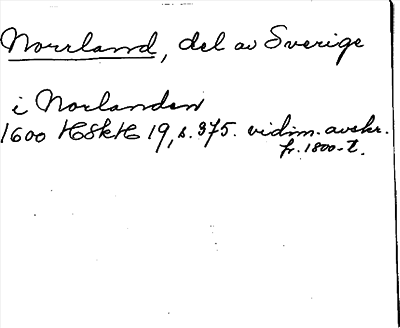 Norrland, del av Sverige
i Norlanden
1600 HSkH 19, s. 375. vidim. avskr.
fr. 1800-t.